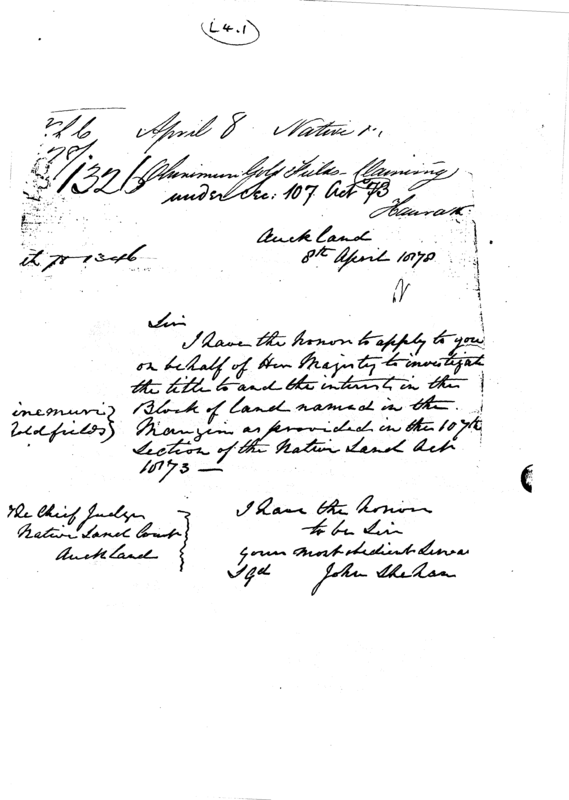 L4.1
April 8 Native
/1326 Ohinemuri Gold Fields Claiming
under Sec: 107 Act 73
Hauraki
Auckland
8th April 1878
1346
Sir
I have the honor to apply to you
on behalf of Her Majesty to investigate
the title to and the interests in the
Block of land named in the
inemuri
oldfields
Margin as provided in the 107th
Section of the Native Land Act
1873 —
The Chief Judge
Native Land Court
Auckland
I have the honor
to be Sir
your most obedient Serva
Sgd John Sheehan